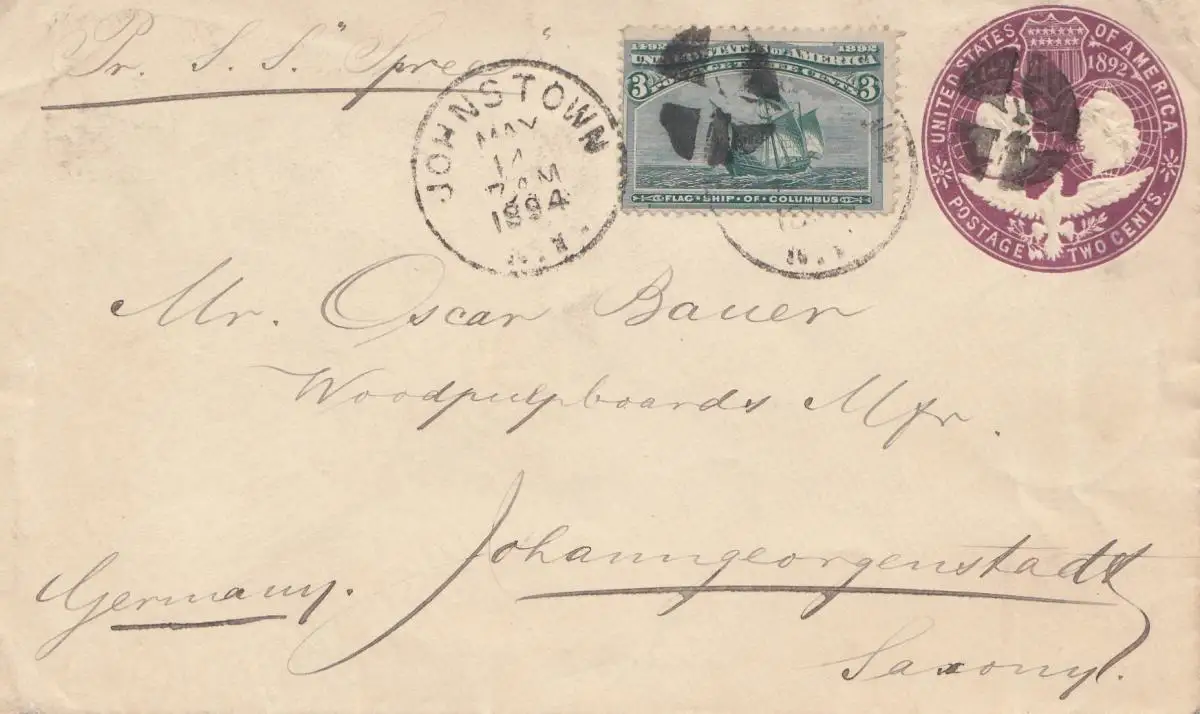 Pr. S. S. "Spree"
JOHNSTOWN
MAY
7 AM
1894
N.Y.
1492 1892
UNITED STATES OF AMERICA
POSTAGE THREE CENTS
3 3
FLAG·SHIP·OF·COLUMBUS
N.Y.
UNITED STATES OF AMERICA.
1892
POSTAGE TWO CENTS.
Mr. Oscar Bauer
Woodpulpboards Mfr.
Johanngeorgenstadt
Germany.
Saxony.